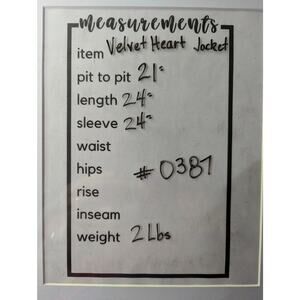 measurements
item Velvet Heart Jacket
pit to pit 21"
length 24"
sleeve 24"
waist
hips
#0387
rise
inseam
weight 2 Lbs